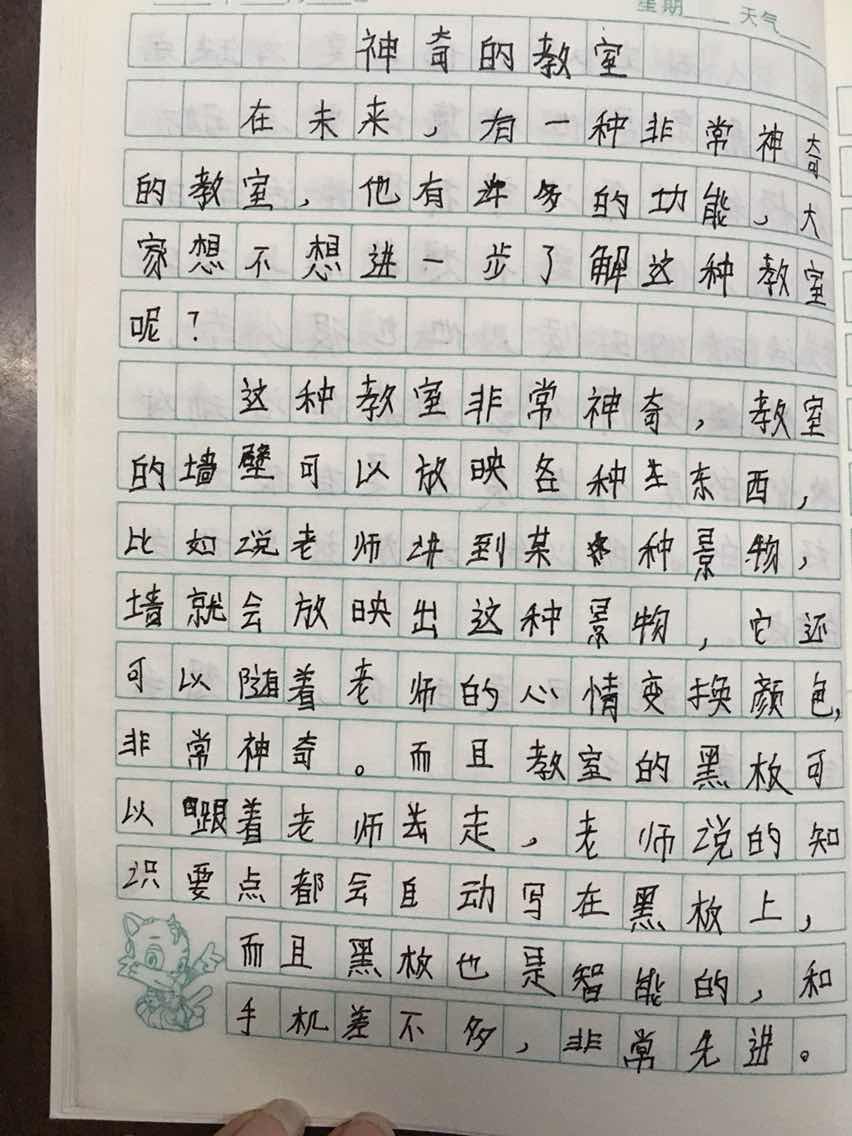 星期 天气
神奇的教室
在未来，有一种非常神奇
的教室，他有许多的功能，大
家想不想进一步了解这种教室
呢？
这种教室非常神奇，教室
的墙壁可以放映各种东西，
比如说老师讲到某种景物，
墙就会放映出这种景物，它还
可以随着老师的心情变换颜色，
非常神奇。而且教室的黑板可
以跟着老师去走，老师说的知
识要点都会自动写在黑板上，
而且黑板也是智能的，和
手机差不多，非常先进。